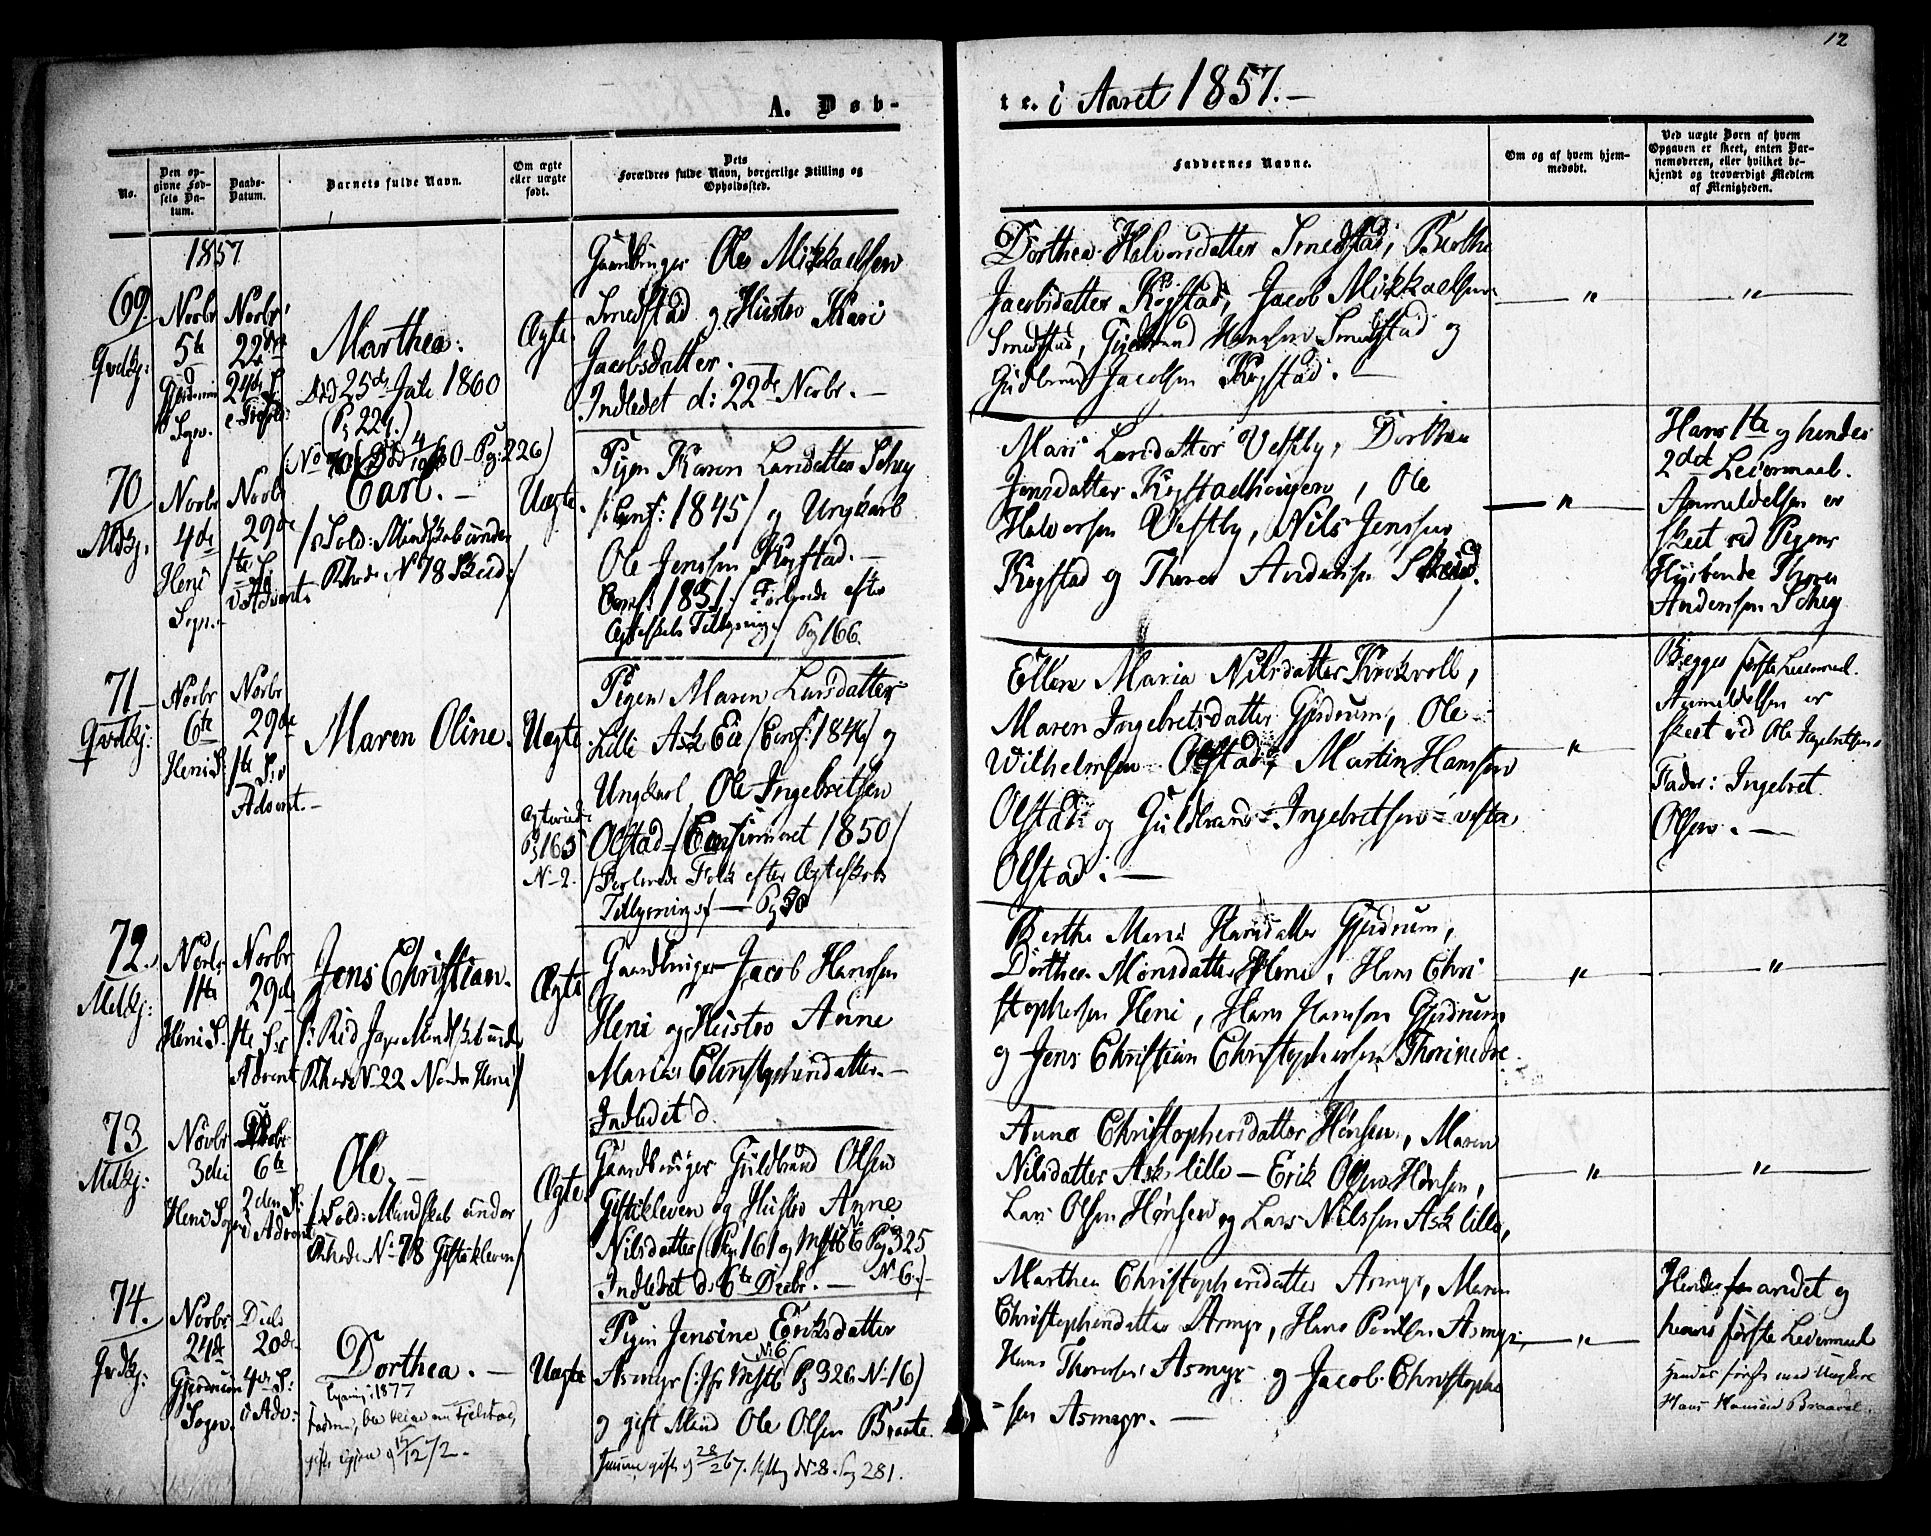 12
A. Døb-
te. i Aaret 1857.-
No.
Den op-
givne Fød-
sels Da-
tum.
Daabs-
Datum.
Barnets fulde Navn.
Om ægte
eller uægte
født.
Dets
Forældres fulde Navn, borgerlige Stilling og
Opholdssted.
Faddernes Navne.
Om og af hvem hjem-
medøbt.
Ved uægte Børn af hvem
Opgaven er skeet, enten Bar-
nemoderen, eller hvilket be-
kjendt og troværdigt Medlem
af Menigheden.
1857
69.
Qvdkj:
Novbr
5te
Gjerdrum
Sogn.
Novbr
22de
24de S.
e Trefol:
Marthea.
død 25de Juli 1860
(Pg 229.)
Ægte.
Gaardbruger Ole Mikkaelsen
Smedstad og Hustro Kari
Jacobsdatter.
Indledet d: 22de Novbr. -
Dorthea Halvorsdatter Smedstad, Berthe
Jacobsdatter Kogstad, Jacob Mikkaelsen
Smedstad, Gudbrand Hansen Smedstad og
Gudbrand Jacobsen Kogstad. -
"
"
70
Mdkj.
Novbr
4de
Heni
Sogn.
Novbr
29de
1te S.
i Advent.
Pg: 226)
Carl. -
/: Sold: Mandskab under
Rhode No 78 Skud:/
Uægte.
Pigen Karen Larsdatter Schey
/: Conf: 1845/ og Ungkarl
Ole Jenssen Kogstad. -
Conf: 1851: / Forlovede efter
Ægteskabs Tillysning / Pg 166.
Mari Larsdatter Vestby, Dorthea
Jensdatter Kogstadhougen, Ole
Halvorsen Vestby, Nils Jenssen
Kogstad og Thorer Andersen Skeid.
"
Hans 1te og hendes
2det Leiermaal.
Anmeldelsen er
skeet ved Pigens
Husbonde Thorer
Andersen Schey
71
Qvdkj:
Novbr
6te
Heni S.
Novbr
29de
1te S. i
Advent. -
Maren Oline.
Uægte
Pg 165
N-2.
Pigen Maren Larsdatter
Lille Ask Eie /Conf: 1846/ og
Ungkarl Ole Ingebretsen
Olstad /Confirmeret 1850/
/Forlovede Folk efter Ægteskabs
Tillysning:/ - Pg 50
Ellen Maria Nilsdatter Krokvold,
Maren Ingebretsdatter Gjerdrum, Ole
Wilhelmsen Olstad, Martin Hansen
Olstad og Guldbrand Ingebretsen vestre
Olstad. -
"
Begges første Leiermaal.
Anmeldelsen er
skeet ved Ole Ingebretsens
Fader: Ingebret
Olsen. -
72.
Mdkj:
Novbr
11te
Heni S.
Novbr
29de
1te S. i
Advent
Jens Christian.
/: Rid Jæger Mandskab under
Rhode N-22 Nordre Heni/
Ægte
Gaardbruger Jacob Hanssen
Heni og Hustro Anne
Maria Christophersdatter. -
Indledet d.
Berthe Marie Hansdatter Gjerdrum,
Dorthea Monsdatter Heni, Hans Chri
stophersen Heni, Hans Hansen Gjerdrum
og Jens Christian Christophersen Thorinedre.
"
"
73
Mdkj:
Novbr
3die
Heni Sogn
Decbr
6te
2den S:
i Advent
Ole. -
/: Sold: Mandskab under
Rhode No 78 Gistekleven/
Ægte.
Gaardbruger Guldbrand Olsen
Gistekleven og Hustro Anne
Nilsdatter /Pg. 161 og Mstb Pg 325
N-6.
Indledet d: 6te Decbr. -
Anne Christophersdatter Hønsen, Maren
Nilsdatter Ask lille - Erik Olsen Hønsen,
Lars Olsen Hønsen og Lars Nilssen Ask lille,
"
"
74.
Qvdkj:
Novbr
24de
Gjerdrum
Sogn.
Decbr
20de
4de S:
i Adv:
Dorthea. -
1877
Uægte
Pigen Jensine Eriksdatter
Asmyr (: Mstb Pg 326 N-16)
og gift Mand Ole Olsen Braate.
28/2 67. N-8. Pag 281.
Marthea Christophersdatter Asmyr, Maren
Christophersdatter Asmyr, Hans Poulsen Asmyr,
Hans Thoresen Asmyr og Jacob Christophe
-sen Asmyr. -
"
Hendes andet og
hans første Leiermaal
hendes første med Ungkarl
Hans Hansen